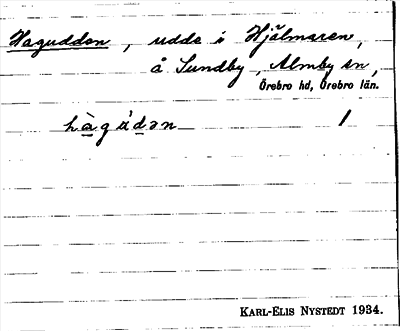 Haguddon, udde i Hjälmaren,
å Sundby, Almby sn,
Örebro hd, Örebro län.
hàgúdən 1
KARL-ELIS NYSTEDT 1934.